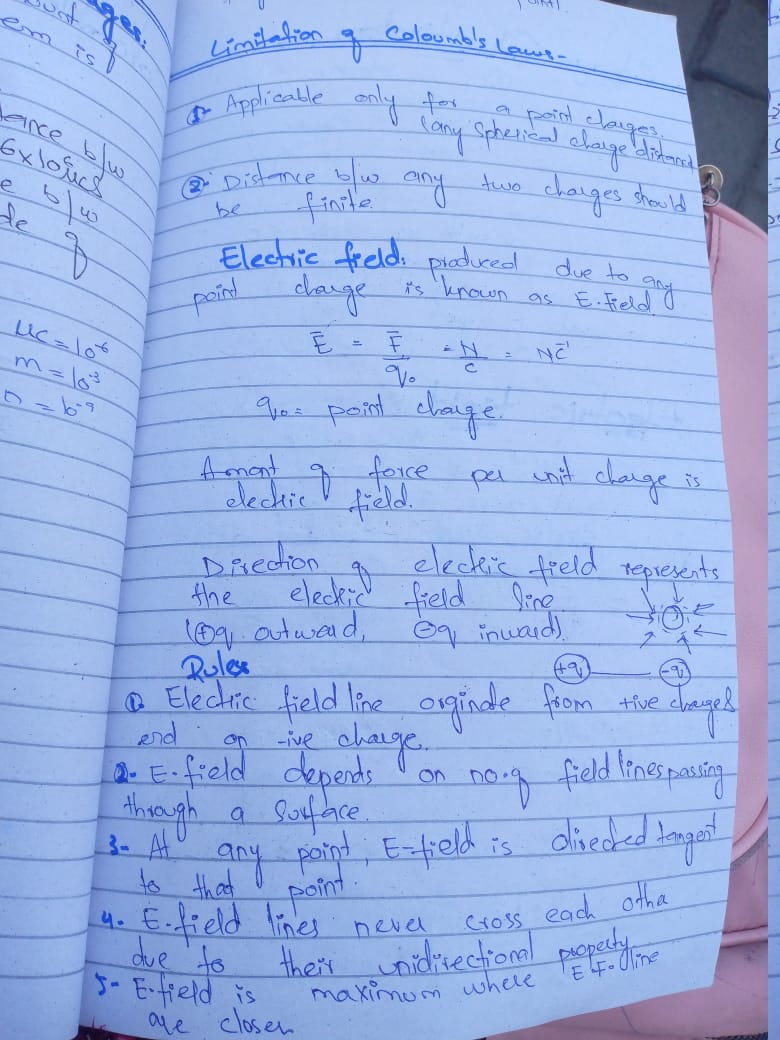 ages.
em is
Limitation of Coloumb's Laws-
1- Applicable only for a point charges.
(any spherical charge distance
2- Distance b/w any two charges should
be finite.
Electric field: produced due to any
point charge is known as E.field
Ē = F̄/q₀ = N/C = NC⁻¹
q₀ = point charge.
Amont of force per unit charge is
electric field.
Direction of electric field represents
the electric field line.
(⊕q outward, ⊖q inward).
+q -q
Rules
① Electric field line orginate from +ive charge &
end on -ive charge.
2- E.field depends on no.of field lines passing
through a surface.
3- At any point, E-field is directed tangent
to that point.
4- E.field lines never cross each otha
due to their unidirectional property
5- E-field is maximum where E.F.line
are closer
tance b/w
6x10
e b/w
de of
μc = 10⁻⁶
m = 10⁻³
n = 10⁻⁹